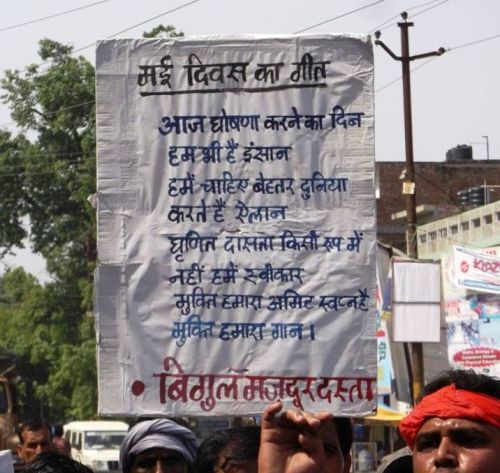 मई दिवस का गीत
आज घोषणा करने का दिन
हम भी हैं इंसान
हमें चाहिए बेहतर दुनिया
करते हैं ऐलान
घृणित दासता किसी रूप में
नहीं हमें स्वीकार
मुक्ति हमारा अमिट स्वप्न है
मुक्ति हमारा गान ।
• बिगुल मजदूर दस्ता